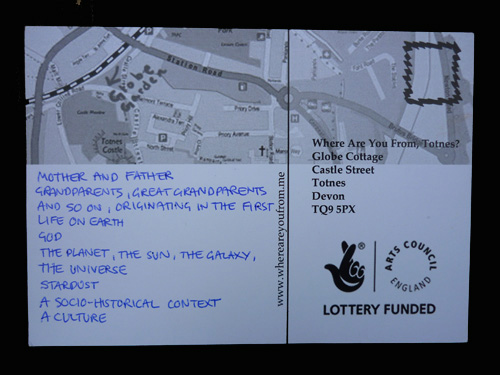 Station Road
Globe
Garden
Priory Drive
Priory Avenue
North Street
Totnes
Castle
MOTHER AND FATHER
GRANDPARENTS, GREAT GRANDPARENTS
AND SO ON, ORIGINATING IN THE FIRST
LIFE ON EARTH
GOD
THE PLANET, THE SUN, THE GALAXY,
THE UNIVERSE
STARDUST
A SOCIO-HISTORICAL CONTEXT
A CULTURE
www.whereareyoufrom.me
Where Are You From, Totnes?
Globe Cottage
Castle Street
Totnes
Devon
TQ9 5PX
ARTS COUNCIL
ENGLAND
LOTTERY FUNDED